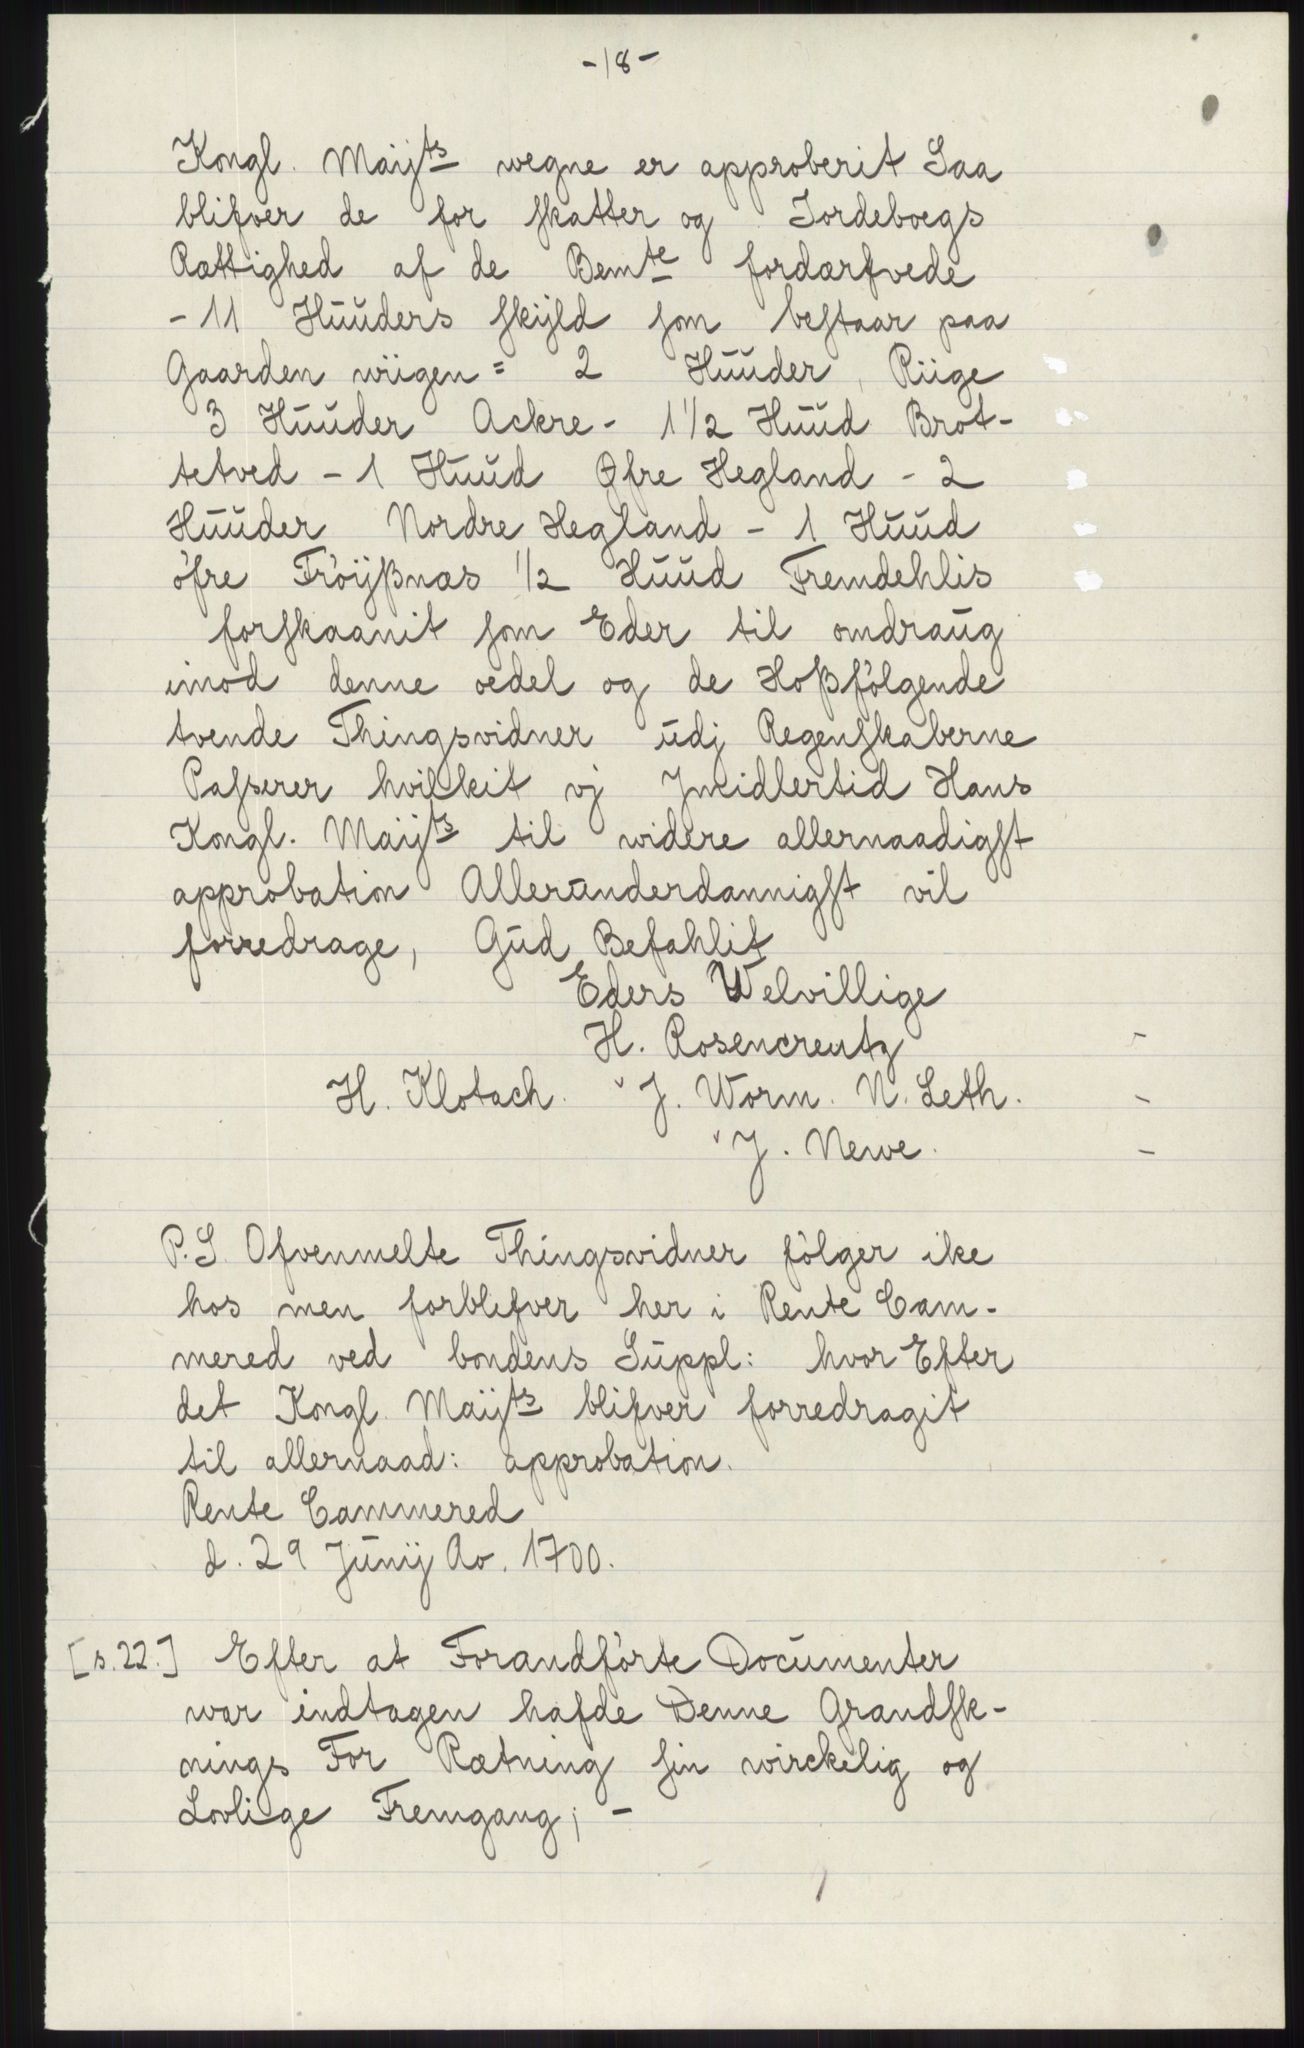 -18-
Kongl. Maijts wegne er approberit Saa
blifver de for skatter og Jordeboegs
Rættighed af de Bemte fordærfvede
- 11 Huuders skijld som bestaar paa
Gaarden wiigen = 2 Huuder, Riige
3 Huuder Ackre - 1 1/2 Huud Brot-
tetved - 1 Huud Øfre Hegland - 2
Huuder Nordre Hegland - 1 Huud
öfre Fröijßnæs 1/2 Huud Fremdehlis
forskaanit som Eder til omdraug
imod denne sedel og de Hoßfölgende
tvende Thingsvidner udj Regenskaberne
Passerer hvilkit vj Jmidlertid Hans
Kongl. Maijts til widere allernaadigst
approbation Allerunderdannigst vil
forredrage, Gud Befahlit
Eders Welvillige
H. Rosencreutz
H. Klotach. J. Worm. N. Leth.
J. Nerve.
P.S. Ofvenmelte Thingsvidner fölger ike
hos men forblifver her i Rente Cam-
mered ved bondens Suppl: hvor Efter
det Kongl. Maijts blifver forredragit
til allernaad: approbation.
Rente Cammered
d. 29 Junij Ao. 1700.
[s.22.] Efter at Forandförte Documenter
war indtagen hafde Denne Grandsk-
nings For Rætning sin wirckelig og
Lovlige Fremgang; -